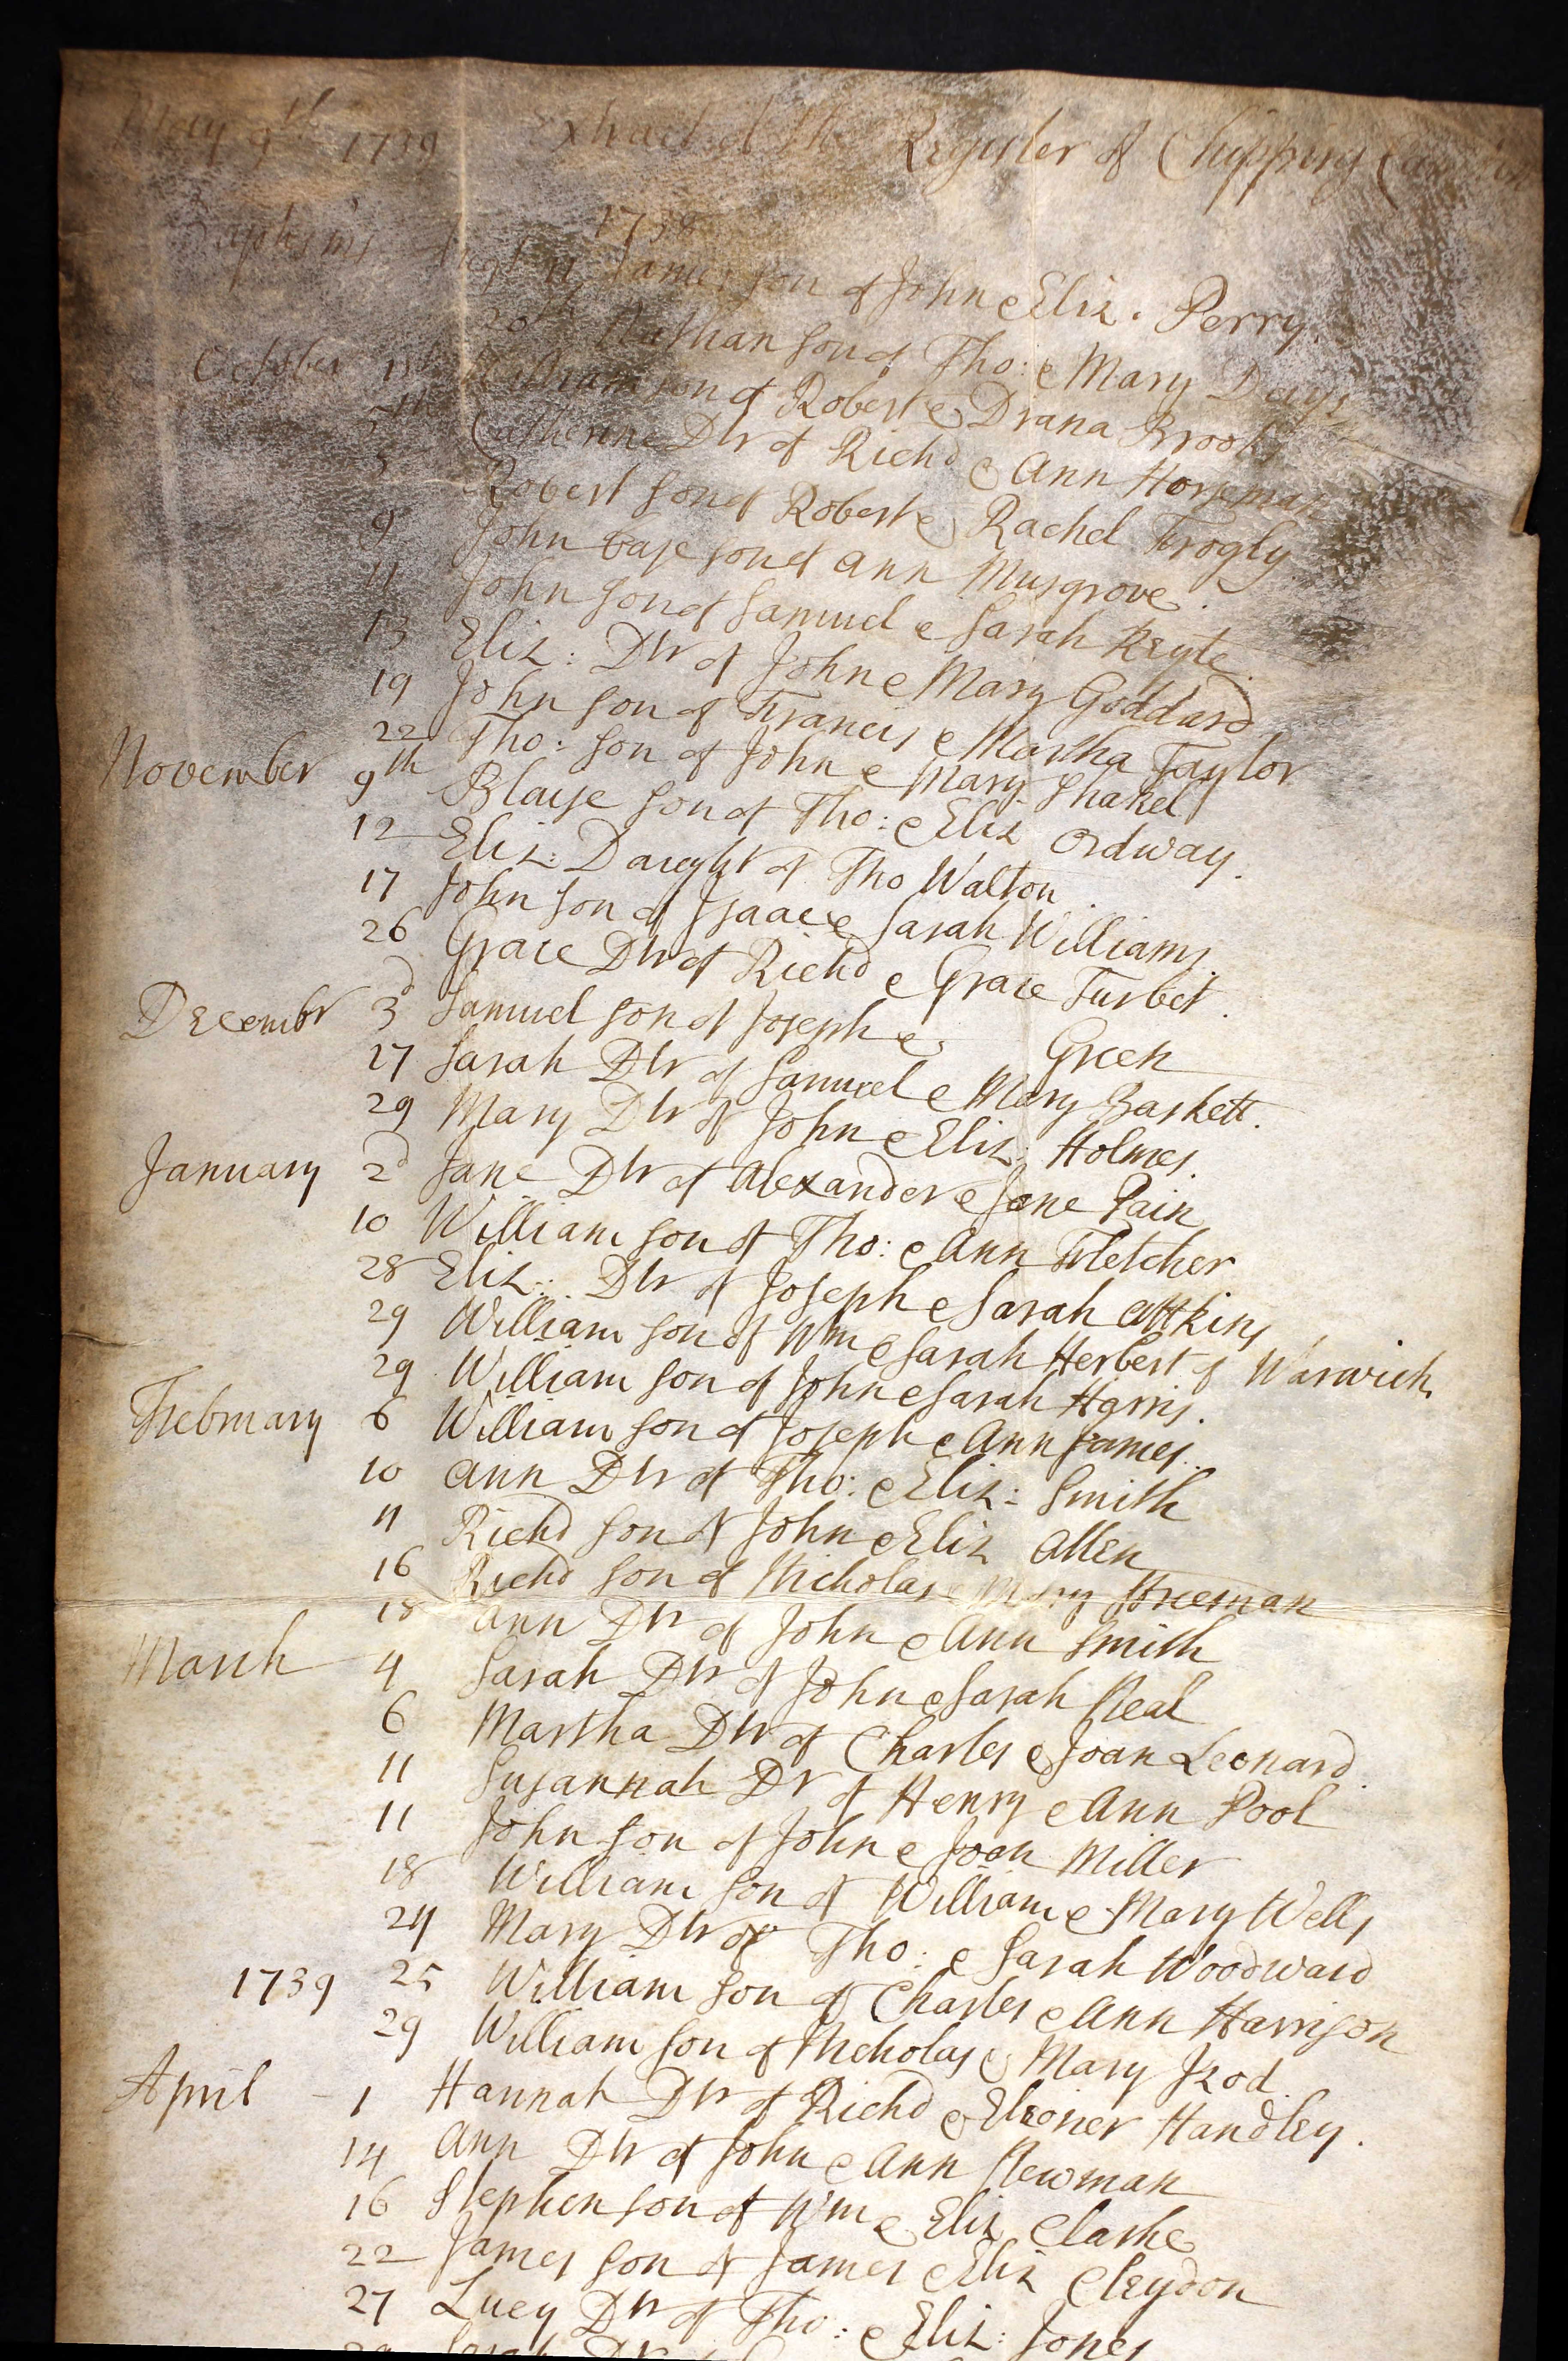 May 9th 1739 Extract of the Register of Chipping
Baptisms 1738
11 James son of John & Eliz. Perry.
20th Nathan son of Tho: & Mary Days
October 1st William son of Robert & Diana Brooks
5th Catherine Dtr of Richd & Ann Horseman
5 Robert son of Robert & Rachel Frogly
9 John base son of Ann Musgrove.
11 John son of Samuel & Sarah Keyte
13 Eliz: Dtr of John & Mary Goddard
19 John son of Francis & Martha Taylor
22 Tho: son of John & Mary Shakel
November 9th Blaise son of Tho: & Eliz Ordway.
12 Eliz: Daught'r of Tho Walton.
17 John son of Isaac & Sarah Williams.
26 Grace Dtr of Richd & Grace Turbet.
Decembr 3d Samuel son of Joseph & Green
17 Sarah Dtr of Samuel & Mary Baskett.
29 Mary Dtr of John & Eliz: Holmes.
January 2d Jane Dtr of Alexander & Jane Pain
10 William son of Tho: & Ann Fletcher
28 Eliz: Dtr of Joseph & Sarah Attkins
29 William son of Wm & Sarah Herbert of Warwick
29 William son of John & Sarah Harris.
February 6 William son of Joseph & Ann James.
10 Ann Dtr of Tho: & Eliz: Smith
11 Richd son of John & Eliz Allen
16 Richd son of Nicholas & Mary Freeman
18 Ann Dtr of John & Ann Smith
March 4 Sarah Dtr of John & Sarah Neal
6 Martha Dtr of Charles & Joan Leonard.
11 Susannah Dr of Henry & Ann Pool
11 John son of John & Joan Miller
18 William son of William & Mary Wells
24 Mary Dtr of Tho: & Sarah Woodward
1739 25 William son of Charles & Ann Harrison
29 William son of Nicholas & Mary Izod.
April 1 Hannah Dtr of Richd & Eleoner Handley.
14 Ann Dtr of John & Ann Newman
16 Stephen son of Wm & Eliz Clarke
22 James son of James & Eliz Cleydon
27 Lucy Dtr of Tho: & Eliz: Jones